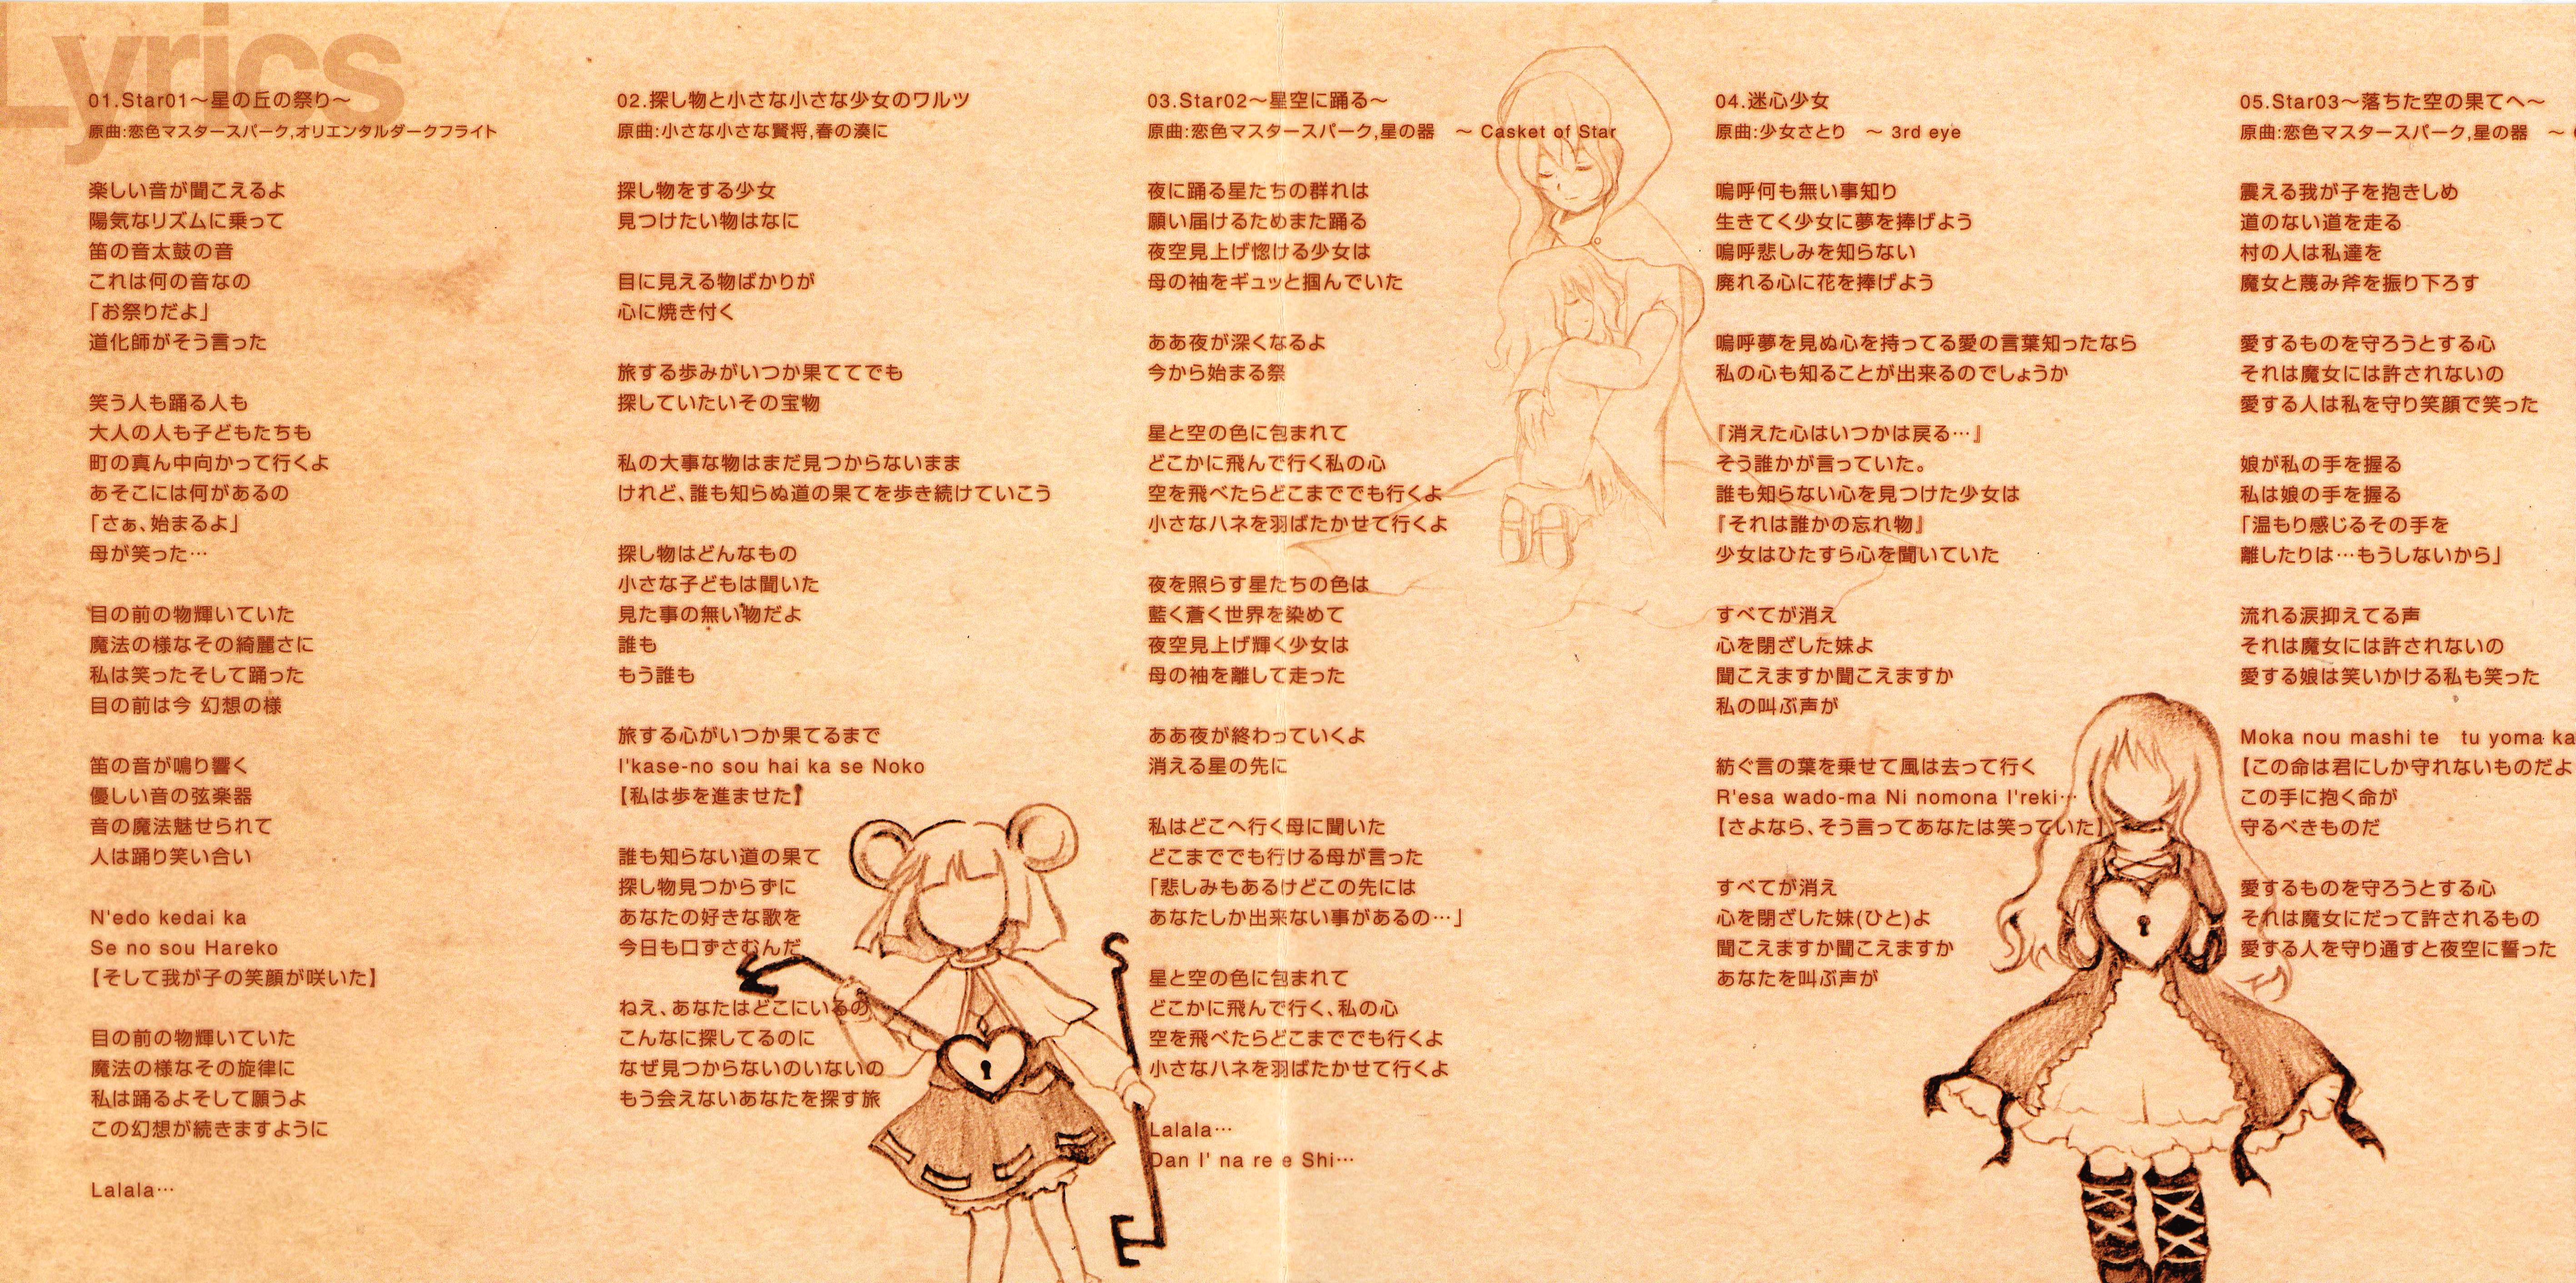 Lyrics
01.Star01～星の丘の祭り～
原曲:恋色マスタースパーク,オリエンタルダークフライト
楽しい音が聞こえるよ
陽気なリズムに乗って
笛の音太鼓の音
これは何の音なの
「お祭りだよ」
道化師がそう言った
笑う人も踊る人も
大人の人も子どもたちも
町の真ん中向かって行くよ
あそこには何があるの
「さぁ、始まるよ」
母が笑った…
目の前の物輝いていた
魔法の様なその綺麗さに
私は笑ったそして踊った
目の前は今 幻想の様
笛の音が鳴り響く
優しい音の弦楽器
音の魔法魅せられて
人は踊り笑い合い
N'edo kedai ka
Se no sou Hareko
【そして我が子の笑顔が咲いた】
目の前の物輝いていた
魔法の様なその旋律に
私は踊るよそして願うよ
この幻想が続きますように
Lalala…
02.探し物と小さな小さな少女のワルツ
原曲:小さな小さな賢将,春の湊に
探し物をする少女
見つけたい物はなに
目に見える物ばかりが
心に焼き付く
旅する歩みがいつか果ててでも
探していたいその宝物
私の大事な物はまだ見つからないまま
けれど、誰も知らぬ道の果てを歩き続けていこう
探し物はどんなもの
小さな子どもは聞いた
見た事の無い物だよ
誰も
もう誰も
旅する心がいつか果てるまで
I'kase-no sou hai ka se Noko
【私は歩を進ませた】
誰も知らない道の果て
探し物見つからずに
あなたの好きな歌を
今日も口ずさむんだ
ねえ、あなたはどこにいるの
こんなに探してるのに
なぜ見つからないのいないの
もう会えないあなたを探す旅
03.Star02～星空に踊る～
原曲:恋色マスタースパーク,星の器　～ Casket of Star
夜に踊る星たちの群れは
願い届けるためまた踊る
夜空見上げ惚ける少女は
母の袖をギュッと掴んでいた
ああ夜が深くなるよ
今から始まる祭
星と空の色に包まれて
どこかに飛んで行く私の心
空を飛べたらどこまででも行くよ
小さなハネを羽ばたかせて行くよ
夜を照らす星たちの色は
藍く蒼く世界を染めて
夜空見上げ輝く少女は
母の袖を離して走った
ああ夜が終わっていくよ
消える星の先に
私はどこへ行く母に聞いた
どこまででも行ける母が言った
「悲しみもあるけどこの先には
あなたしか出来ない事があるの…」
星と空の色に包まれて
どこかに飛んで行く、私の心
空を飛べたらどこまででも行くよ
小さなハネを羽ばたかせて行くよ
Lalala…
Dan I' na re e Shi…
04.迷心少女
原曲:少女さとり　～ 3rd eye
嗚呼何も無い事知り
生きてく少女に夢を捧げよう
嗚呼悲しみを知らない
廃れる心に花を捧げよう
嗚呼夢を見ぬ心を持ってる愛の言葉知ったなら
私の心も知ることが出来るのでしょうか
『消えた心はいつかは戻る…』
そう誰かが言っていた。
誰も知らない心を見つけた少女は
『それは誰かの忘れ物』
少女はひたすら心を聞いていた
すべてが消え
心を閉ざした妹よ
聞こえますか聞こえますか
私の叫ぶ声が
紡ぐ言の葉を乗せて風は去って行く
R'esa wado-ma Ni nomona I'reki…
【さよなら、そう言ってあなたは笑っていた】
すべてが消え
心を閉ざした妹(ひと)よ
聞こえますか聞こえますか
あなたを叫ぶ声が
05.Star03～落ちた空の果てへ～
原曲:恋色マスタースパーク,星の器　～
震える我が子を抱きしめ
道のない道を走る
村の人は私達を
魔女と蔑み斧を振り下ろす
愛するものを守ろうとする心
それは魔女には許されないの
愛する人は私を守り笑顔で笑った
娘が私の手を握る
私は娘の手を握る
「温もり感じるその手を
離したりは…もうしないから」
流れる涙抑えてる声
それは魔女には許されないの
愛する娘は笑いかける私も笑った
Moka nou mashi te　tu yoma ka
【この命は君にしか守れないものだよ
この手に抱く命が
守るべきものだ
愛するものを守ろうとする心
それは魔女にだって許されるもの
愛する人を守り通すと夜空に誓った